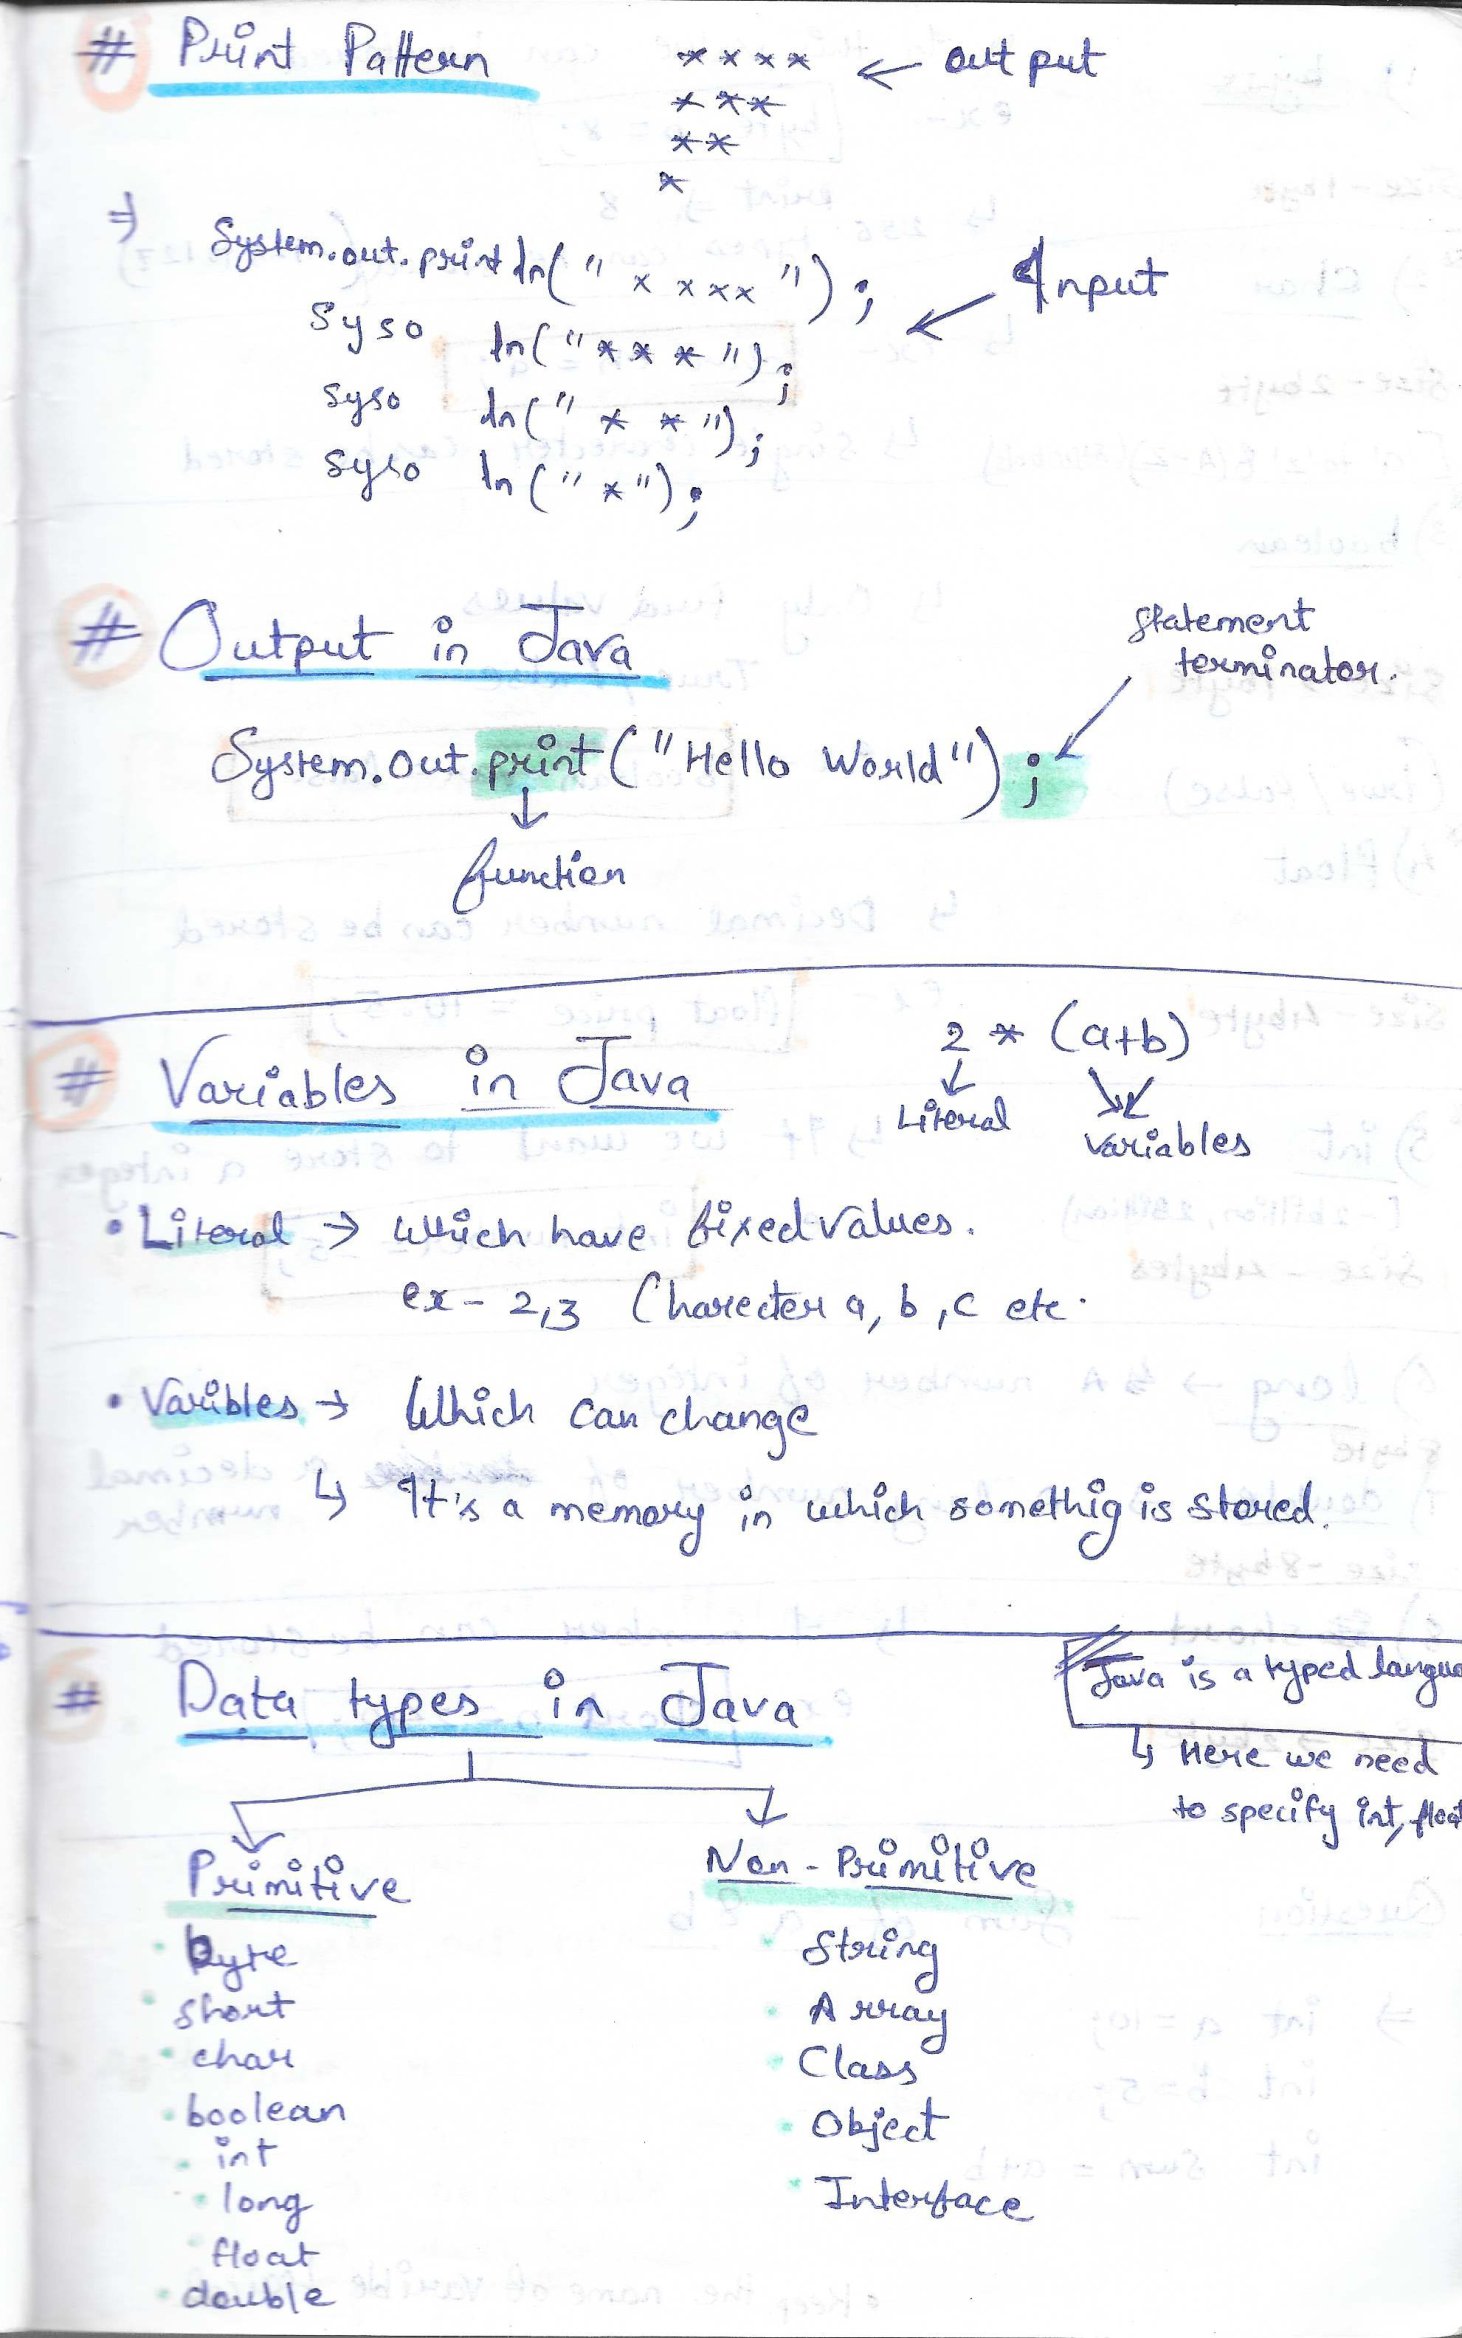 # Print Pattern
**** ← output
***
**
*
⇒ System.out.println("****"); ← Input
Syso ln("***");
Syso ln("**");
Syso ln("*");
# Output in Java
statement
terminator.
System.out.print("Hello World");
function
# Variables in Java
2 * (a+b)
Literal
variables
• Literal → which have fixed values.
ex - 2,3 Charecter a, b, c etc.
• Varibles → Which can change
↳ It's a memory in which somethig is stored.
# Data types in Java
Java is a typed langua
↳ Here we need
to specify int, float
Primitive
Non-Primitive
• byte
• short
• char
• boolean
• int
• long
• float
• double
• String
• Array
• Class
• Object
• Interface